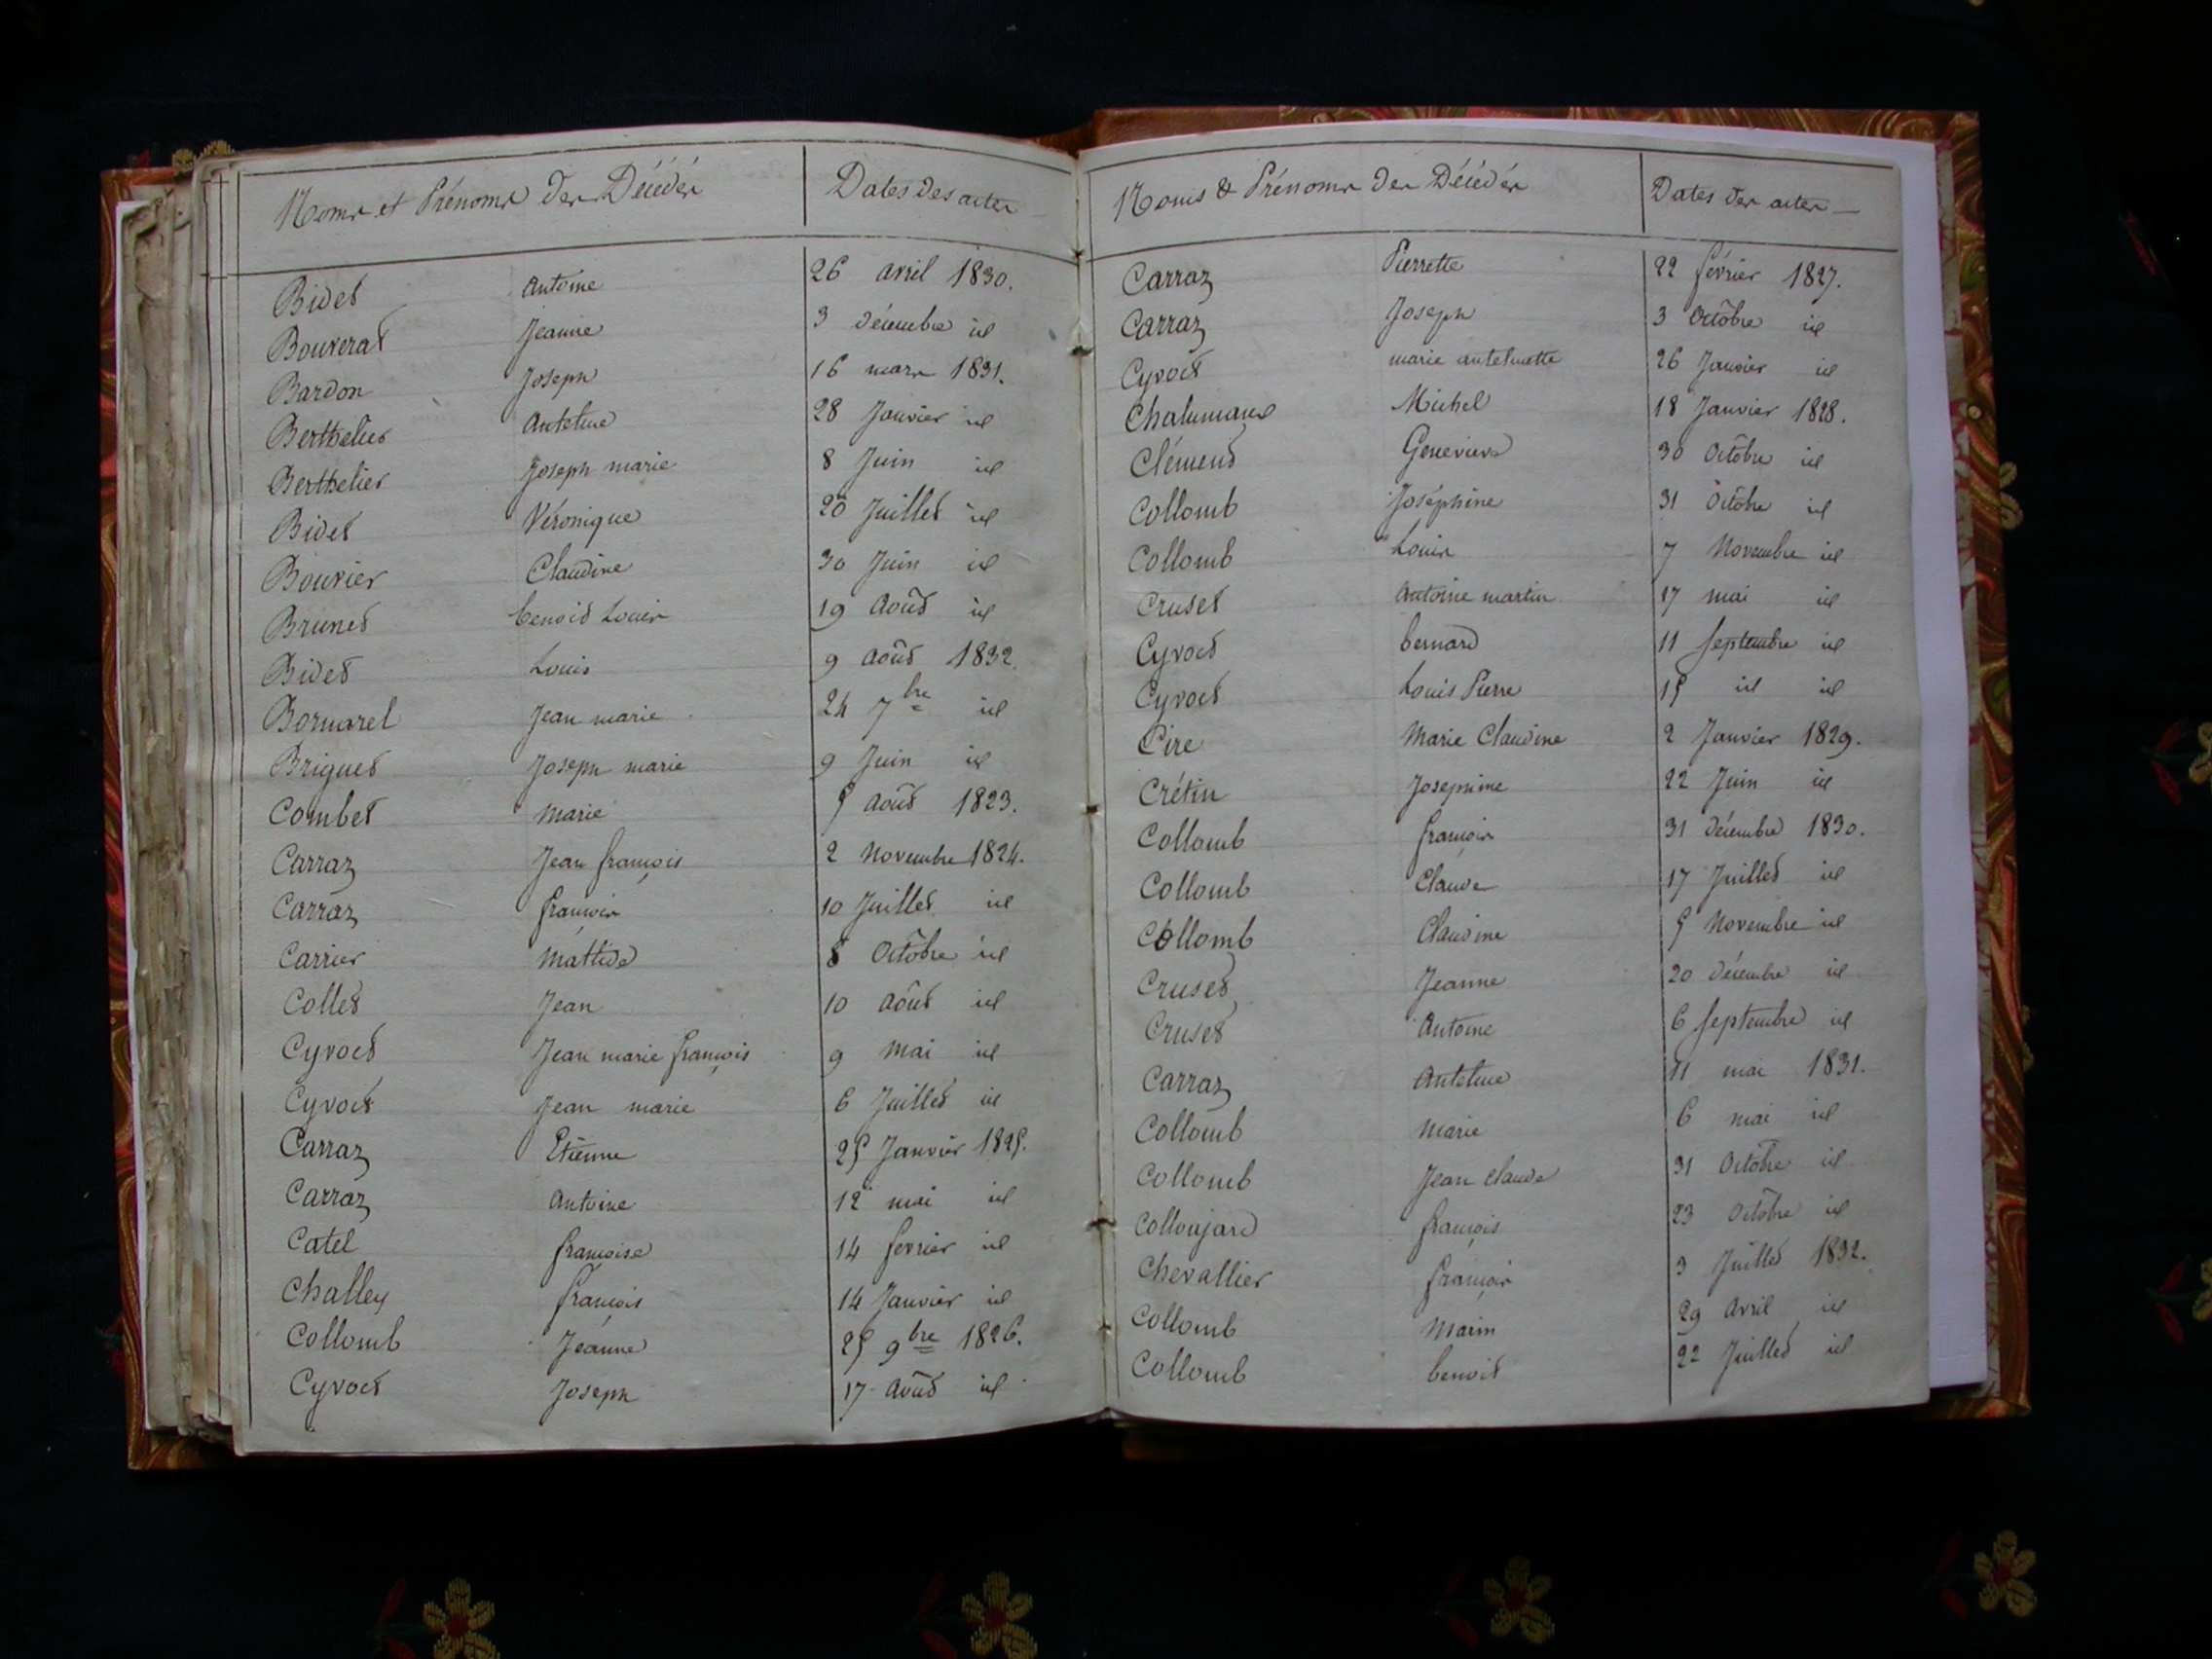 Noms et Prénoms des Décédés Dates des actes
Bidet Antoine 26 avril 1830.
Bouverat Jeanne 3 décembre id
Bardon Joseph 16 mars 1831.
Berthelier Antelme 28 Janvier id
Berthelier Joseph marie 8 Juin id
Bidet Véronique 20 Juillet id
Bouvier Claudine 30 Juin id
Brunet benoit Louis 19 Août id
Bidet Louis 9 août 1832.
Bornarel Jean marie 24 7bre id
Briguet Joseph marie 9 Juin id
Combet Marie 5 août 1823.
Carraz Jean françois 2 Novembre 1824.
Carraz françois 10 Juillet id
Carrier Matilde 8 Octobre id
Collet Jean 10 août id
Cyvoct Jean marie françois 9 Mai id
Cyvoct Jean marie 6 Juillet id
Carraz Etienne 25 Janvier 1825.
Carraz Antoine 12 mai id
Catel françoise 14 fevrier id
Challey françois 14 Janvier id
Collomb Jeanne 25 9bre 1826.
Cyvoct Joseph 17 Août id
Noms & Prénoms des Décédés Dates des actes
Carraz Pierrette 22 février 1827.
Carraz Joseph 3 Octobre id
Cyvoct marie antelmette 26 Janvier id
Chalumaux Michel 18 Janvier 1828.
Clément Genevieve 30 Octobre id
Collomb Joséphine 31 Octobre id
Collomb Louis 7 Novembre id
Cruset Antoine martin 17 mai id
Cyvoct bernard 11 Septembre id
Cyvoct Louis Pierre 15 id id
Cire Marie Claudine 2 Janvier 1829.
Crétin Josephine 22 Juin id
Collomb françois 31 décembre 1830.
Collomb Claude 17 Juillet id
Collomb Claudine 5 Novembre id
Cruset Jeanne 20 Décembre id
Cruset Antoine 6 Septembre id
Carraz Antelme 11 mai 1831.
Collomb Marie 6 mai id
Collomb Jean Claude 31 Octobre id
Colloujard françois 23 Octobre id
Chevallier françois 3 Juillet 1832.
Collomb Marin 29 Avril id
Collomb benoit 22 Juillet id